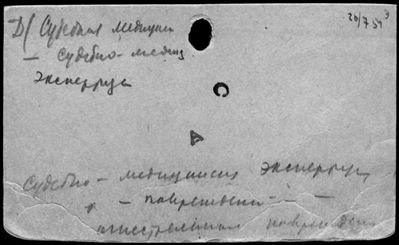 Д/ Судебная медицина
– судебно-медиц
экспертиза
Судебно – медицинская экспертиза
– повреждени – –
огнестрельном повреждени